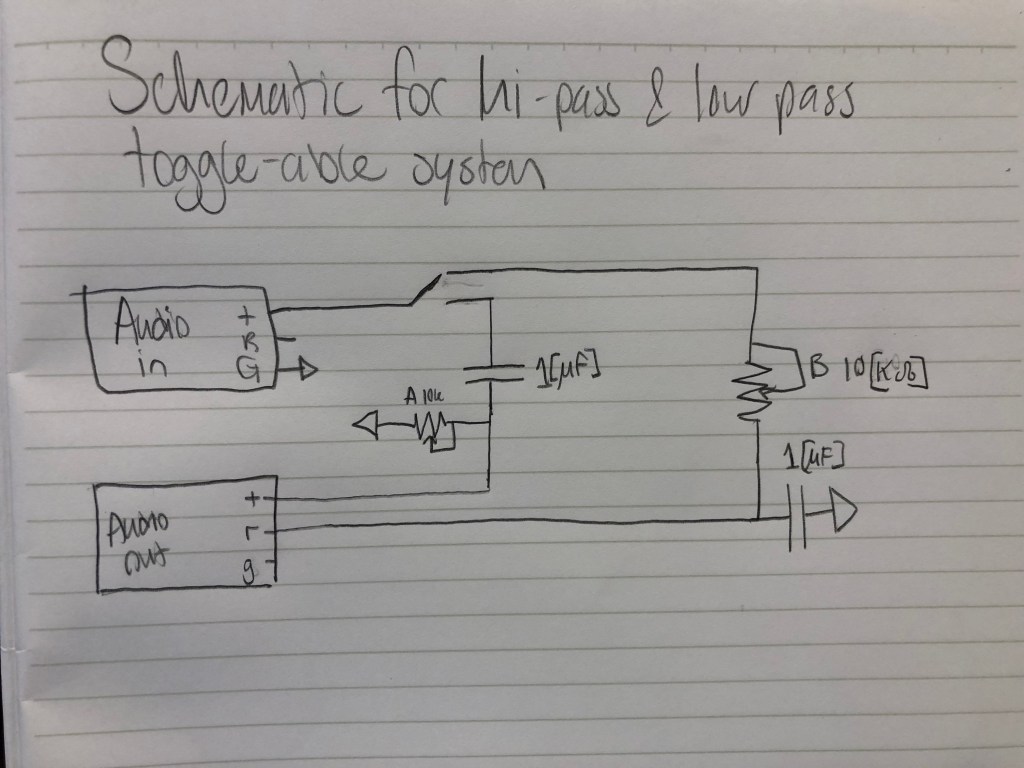 Schematic for hi-pass & low pass
toggle-able system
Audio
in
+
R
G
1[μF]
A 10k
B 10[KΩ]
1[μF]
Audio
out
+
r
g